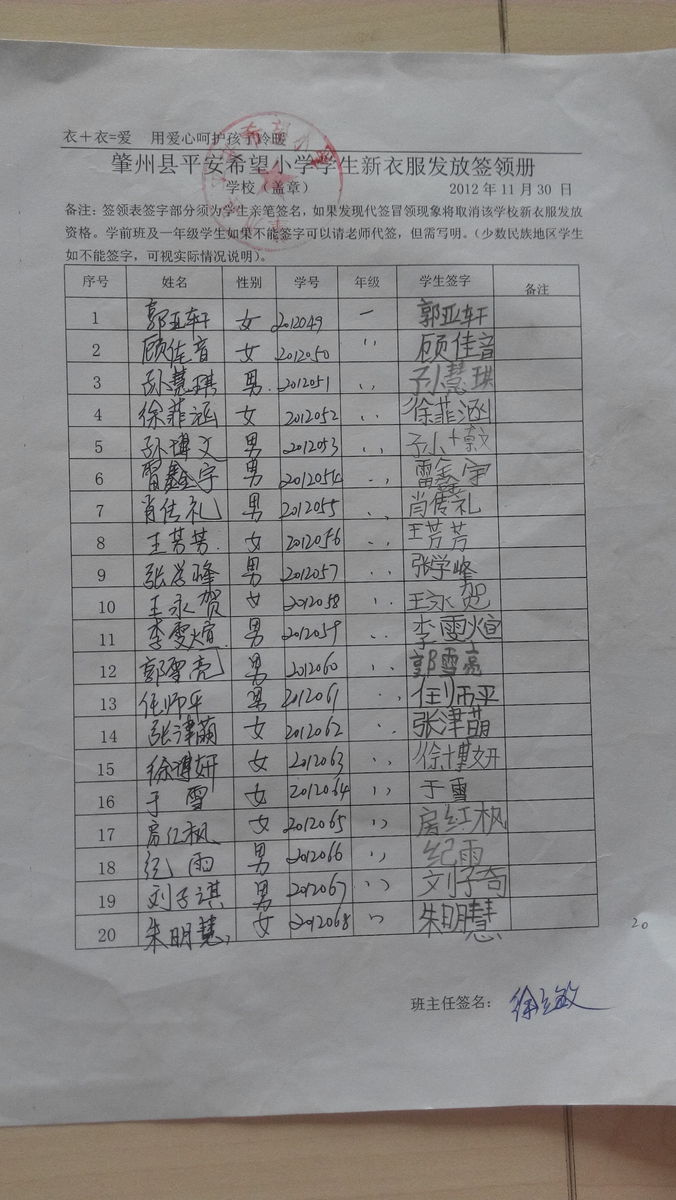 衣+衣=爱 用爱心呵护孩子冷暖
肇州县平安希望小学学生新衣服发放签领册
学校（盖章） 2012年11月30日
备注：签领表签字部分须为学生亲笔签名，如果发现代签冒领现象将取消该学校新衣服发放
资格。学前班及一年级学生如果不能签字可以请老师代签，但需写明。（少数民族地区学生
如不能签字，可视实际情况说明）。
序号 姓名 性别 学号 年级 学生签字 备注
1 郭亚轩 女 2012049 一 郭亚轩
2 顾佳音 女 2012050 〃 顾佳音
3 孙慧琪 男 2012051 〃 孙慧琪
4 徐菲涵 女 2012052 〃 徐菲涵
5 孙博文 男 2012053 〃 孙博文
6 雷鑫宇 男 2012054 〃 雷鑫宇
7 肖传礼 男 2012055 〃 肖传礼
8 王芳芳 女 2012056 〃 王芳芳
9 张学峰 男 2012057 〃 张学峰
10 王永贺 女 2012058 〃 王永贺
11 李雯煊 男 2012059 〃 李雯煊
12 郭雪亮 男 2012060 〃 郭雪亮
13 任师平 男 2012061 〃 任师平
14 张津萌 女 2012062 〃 张津萌
15 徐博妍 女 2012063 〃 徐博妍
16 于雪 女 2012064 〃 于雪
17 房红枫 女 2012065 〃 房红枫
18 纪雨 男 2012066 〃 纪雨
19 刘子淇 男 2012067 〃 刘子奇
20 朱明慧 女 2012068 〃 朱明慧
20
班主任签名： 徐立敏